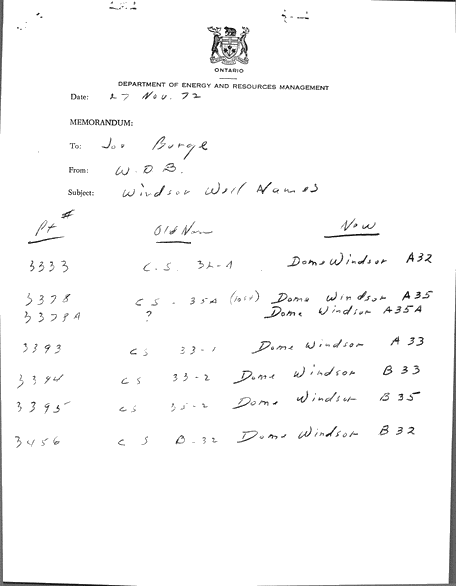 ONTARIO
DEPARTMENT OF ENERGY AND RESOURCES MANAGEMENT
Date: 27 Nov. 72
MEMORANDUM:
To: Joe Burge
From: W.D.B.
Subject: Windsor Well Names
Pt # Old Nam Now
3333 C.S. 32-A Dome Windsor A32
3378 CS - 35A Dome Windsor A35
3378A ? Dome Windsor A35A
3393 CS 33-1 Dome Windsor A 33
3394 CS 33-2 Dome Windsor B 33
3395 CS 35-2 Dome Windsor B 35
3456 C S B-32 Dome Windsor B 32